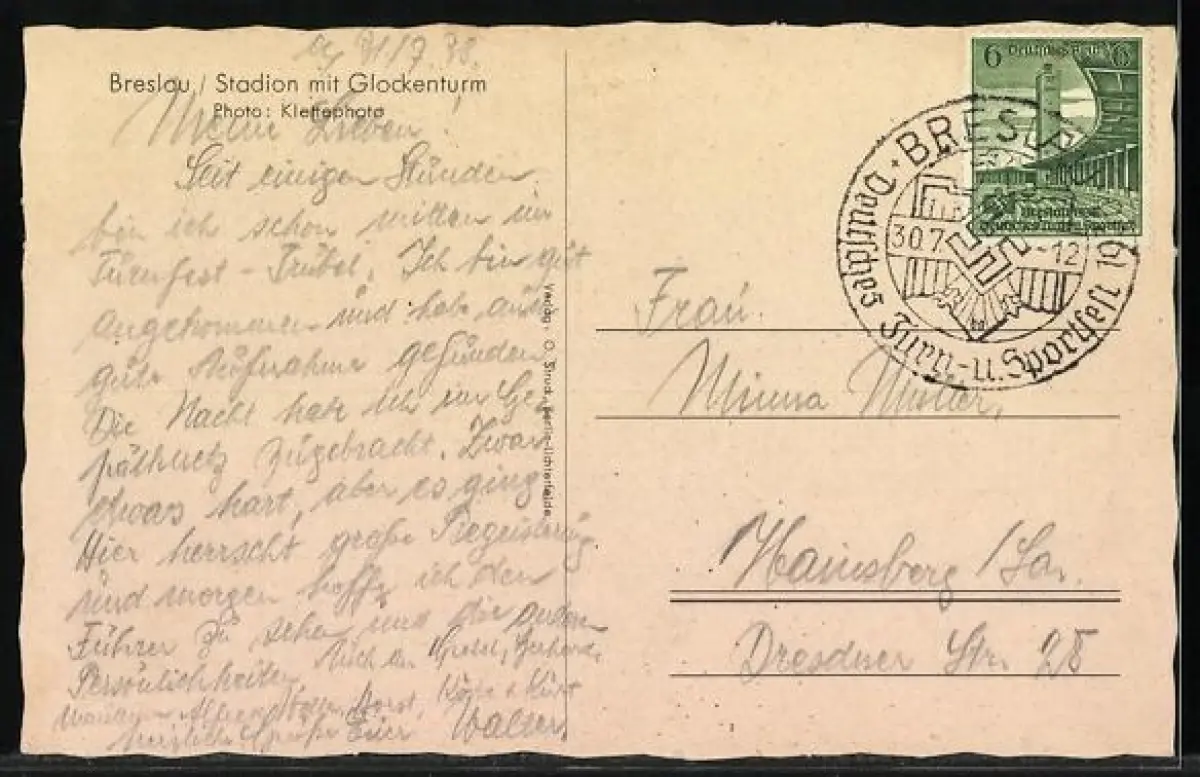 31/7.38.
Breslau / Stadion mit Glockenturm
Photo: Klettephoto
Meine Lieben!
Seit einigen Stunden
bin ich schon mitten im
Turnfest-Trubel. Ich bin gut
angekommen und habe auch
gute Aufnahme gefunden
Die Nacht habe ich im Ge-
päcknetz zugebracht. Zwar
etwas hart, aber es ging
Hier herrscht große Begeisterung
und morgen hoffe ich den
Führer zu sehen und die anderen
Persönlichkeiten. Auch an Gerhard,
Horst, Kurt
herzliche Grüße Euer Walter.
Verlag: O. Struck, Berlin-Lichterfelde
6 Deutsches Reich 6
BRESLAU
30.7 -12
Deutsches Turn- u. Sportfest 19
Frau
Minna Müller,
Hainsberg /Sa.
Dresdner Str. 28